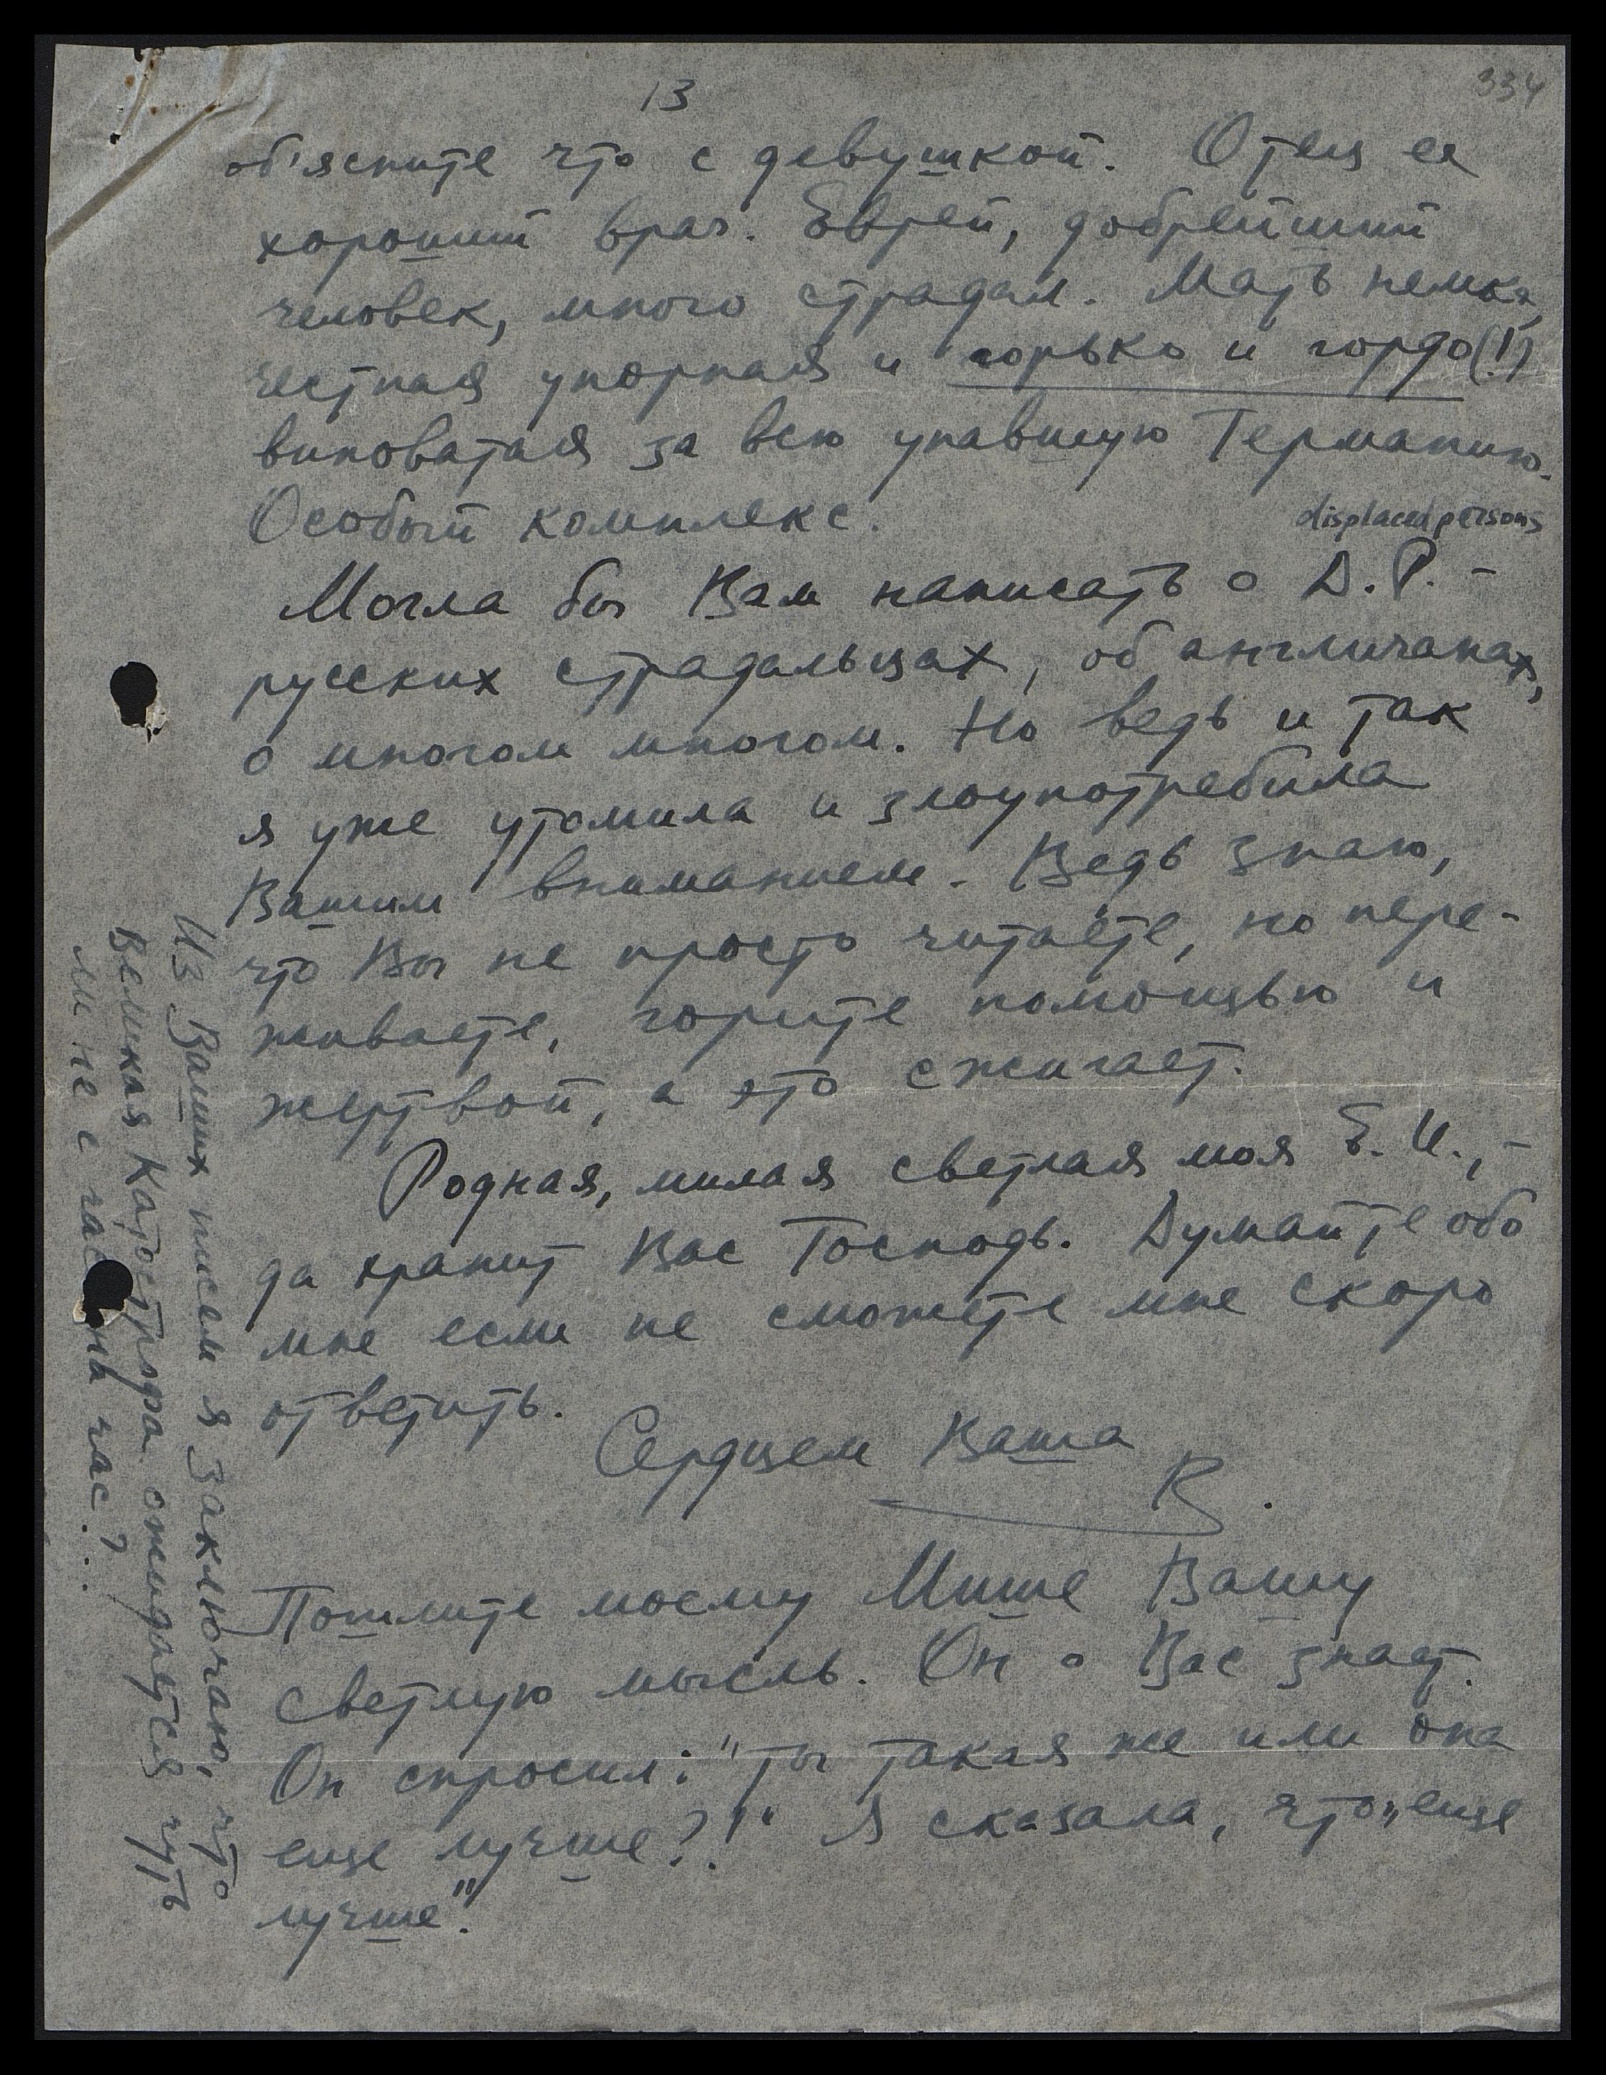 13
334
об'ясните что с девушкой. Отец ее
хороший врач. Еврей, добрейший
человек, много страдал. Мать немка,
честная упорная и горько и гордо(!)
виноватая за всю упавшую Германию.
Особый комплекс.
displaced persons
Могла бы Вам написать о D.P. –
русских страдальцах, об англичанах,
о многом многом. Но ведь и так
я уже утомила и злоупотребила
Вашим вниманием. Ведь знаю,
что Вы не просто читаете, но пере-
живаете, горите помощью и
жертвой, а это сжигает.
Родная, милая светлая моя Е. И., –
да хранит Вас Господь. Думайте обо
мне если не сможете мне скоро
ответить.
Сердцем Ваша
В.
Пошлите моему Мише Вашу
светлую мысль. Он о Вас знает.
Он спросил: "ты такая же или она
еще лучше?!" Я сказала, что „еще
лучше".
Из Ваших писем я заключаю, что
Великая Катострофа ожидается чуть
ли не с часу на час?..